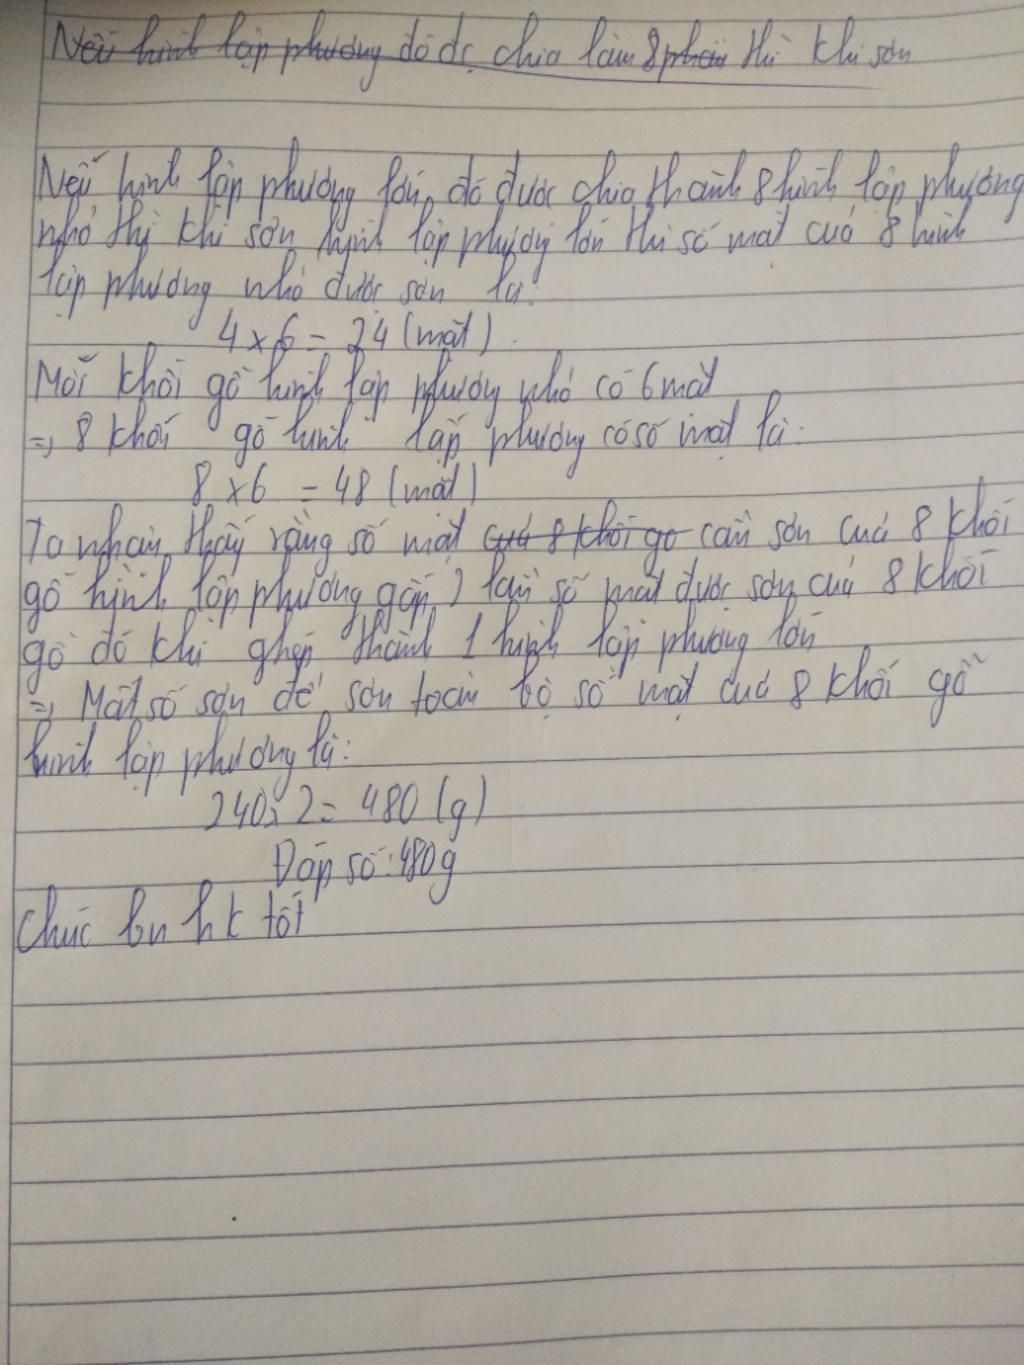 Nếu hình lập phương đó đc chia làm 8 phần thì khi sơn
Nếu hình lập phương lớn đó được chia thành 8 hình lập phương
nhỏ thì khi sơn hình lập phương lớn thì số mặt của 8 hình
lập phương nhỏ được sơn là:
4 x 6 = 24 (mặt).
Mỗi khối gỗ hình lập phương nhỏ có 6 mặt
=> 8 khối gỗ hình lập phương có số mặt là:
8 x 6 = 48 (mặt)
Ta nhận thấy rằng số mặt của 8 khối gỗ cần sơn của 8 khối
gỗ hình lập phương gấp 2 lần số mặt được sơn của 8 khối
gỗ đó khi ghép thành 1 hình lập phương lớn
=> Mất số sơn để sơn toàn bộ số mặt của 8 khối gỗ
hình lập phương là:
240 x 2 = 480 (g)
Đáp số: 480g
Chúc bn hk tốt